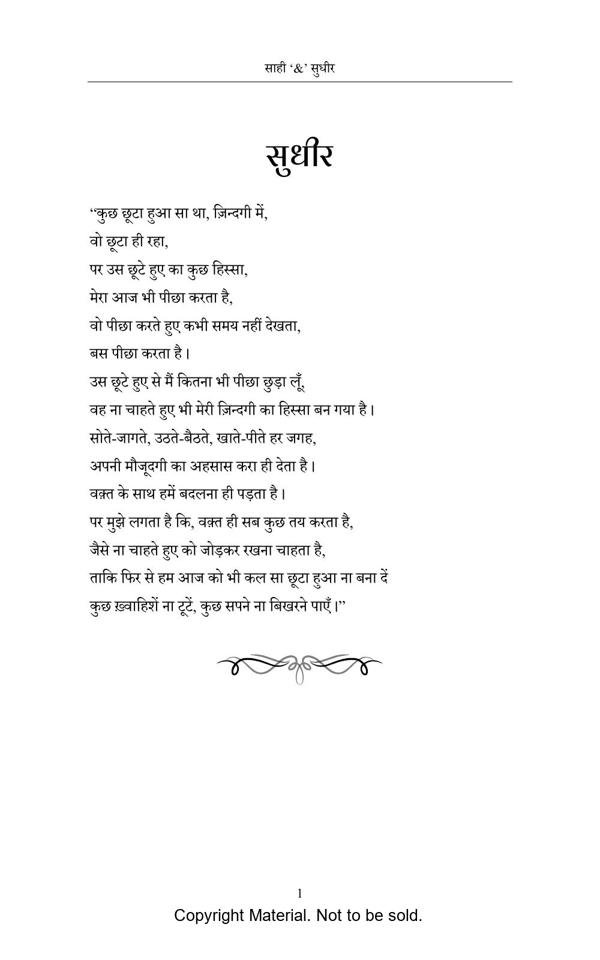 साही ‘&’ सुधीर
सुधीर
“कुछ छूटा हुआ सा था, ज़िन्दगी में,
वो छूटा ही रहा,
पर उस छूटे हुए का कुछ हिस्सा,
मेरा आज भी पीछा करता है,
वो पीछा करते हुए कभी समय नहीं देखता,
बस पीछा करता है।
उस छूटे हुए से मैं कितना भी पीछा छुड़ा लूँ,
वह ना चाहते हुए भी मेरी ज़िन्दगी का हिस्सा बन गया है।
सोते-जागते, उठते-बैठते, खाते-पीते हर जगह,
अपनी मौजूदगी का अहसास करा ही देता है।
वक़्त के साथ हमें बदलना ही पड़ता है।
पर मुझे लगता है कि, वक़्त ही सब कुछ तय करता है,
जैसे ना चाहते हुए को जोड़कर रखना चाहता है,
ताकि फिर से हम आज को भी कल सा छूटा हुआ ना बना दें
कुछ ख़्वाहिशें ना टूटें, कुछ सपने ना बिखरने पाएँ।”
1
Copyright Material. Not to be sold.